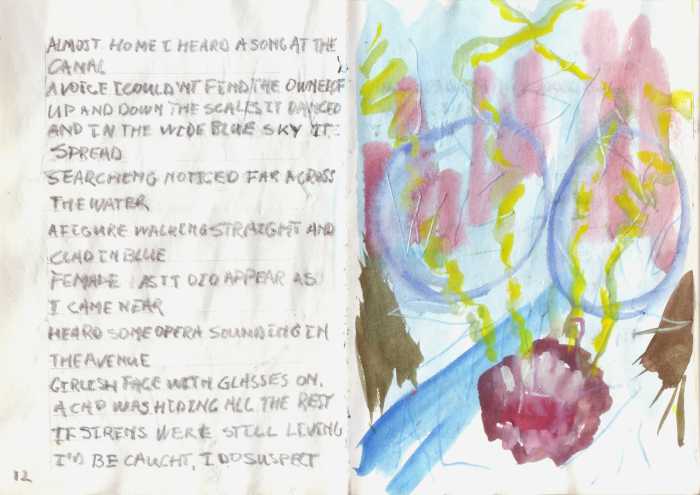 ALMOST HOME I HEARD A SONG AT THE
CANAL
A VOICE I COULDN'T FIND THE OWNER OF
UP AND DOWN THE SCALES IT DANCED
AND IN THE WIDE BLUE SKY IT
SPREAD
SEARCHING NOTICED FAR ACROSS
THE WATER
A FIGURE WALKING STRAIGHT AND
CLAD IN BLUE
FEMALE AS IT DID APPEAR AS
I CAME NEAR
HEARD SOME OPERA SOUNDING IN
THE AVENUE
GIRLISH FACE WITH GLASSES ON,
A CAP WAS HIDING ALL THE REST
IF SIRENS WERE STILL LIVING
I'D BE CAUGHT, I DO SUSPECT
12